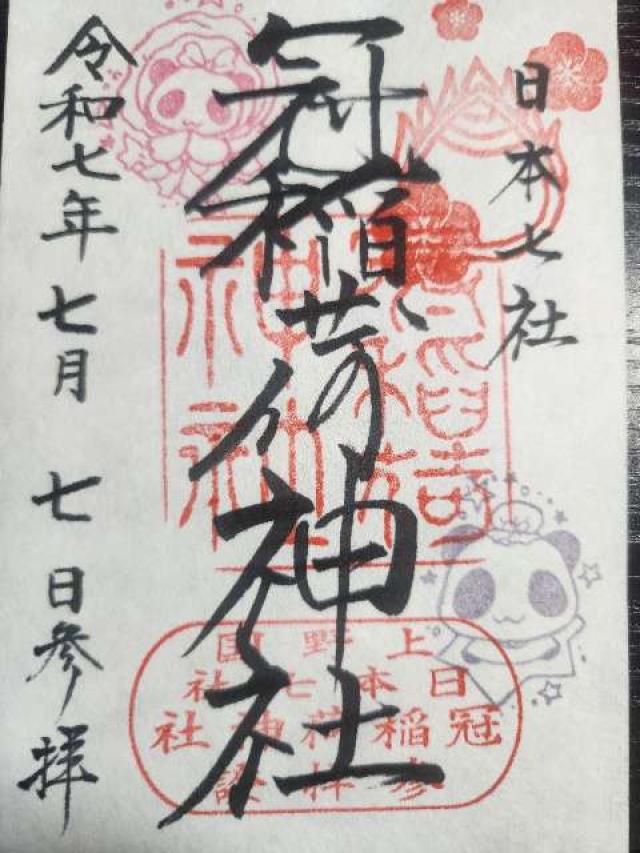 日本七社
冠稲荷神社
令和七年七月七日参拝
上野国
日本七社
冠稲荷神社
参拝證